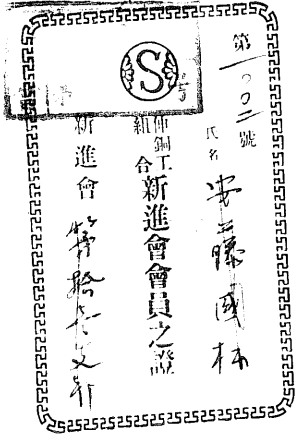 第一〇〇二號
氏名 安藤國林
伸銅工組合 新進會會員之證
新進會 第拾壹支部
S
號